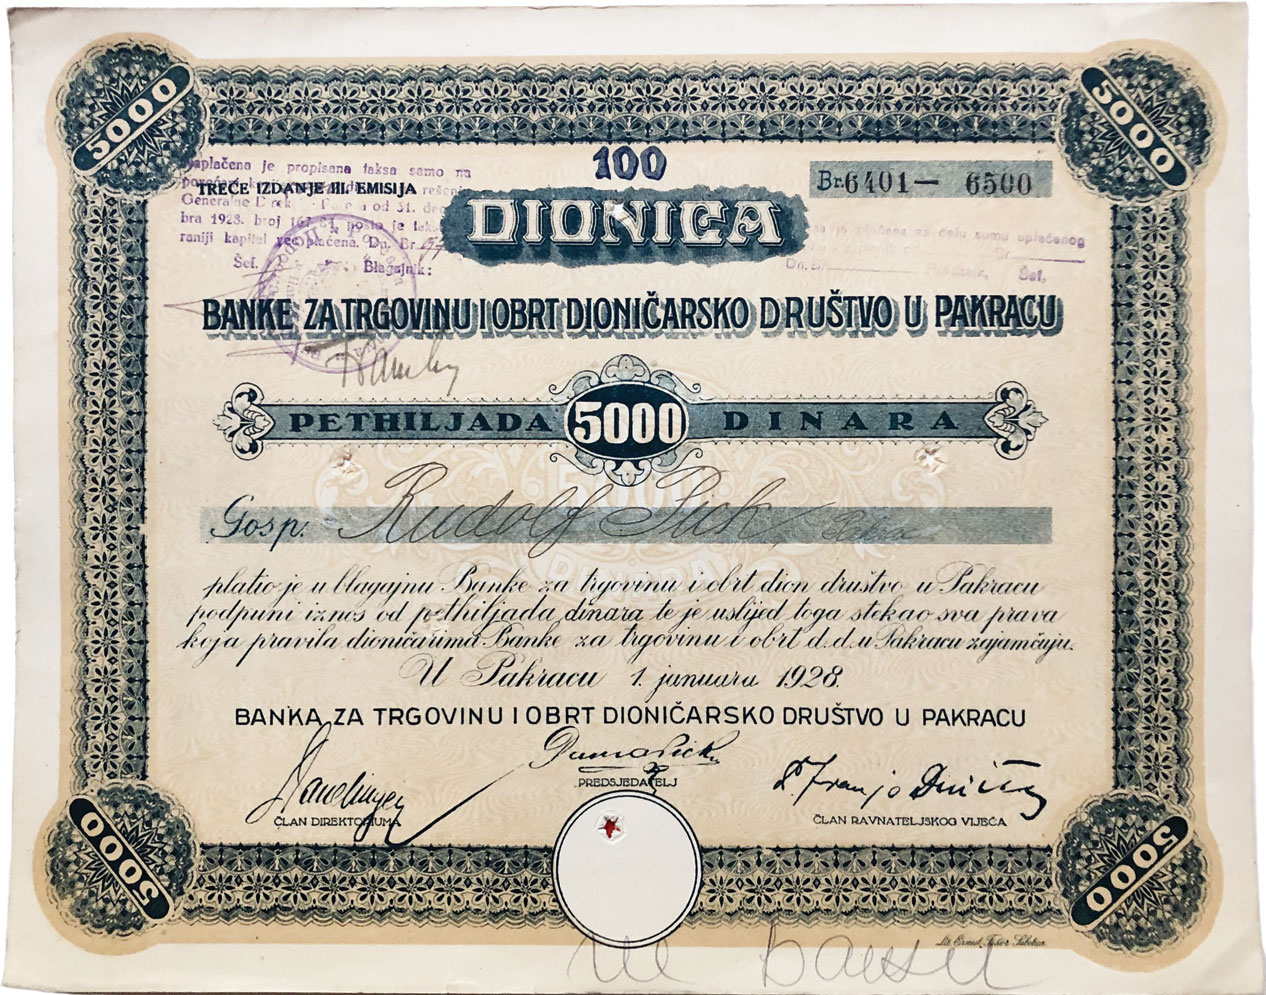 5000
5000
100
Naplaćena je propisana taksa samo na
TREĆE IZDANJE III. EMISIJA
rešenju
Generalne Direkcije Poreza od 31. decem
bra 1928. broj
posto je taksa
raniji kapital već plaćena. Dn. Br.
Šef: Blagajnik:
Br. 6401— 6500
DIONICA
se je plaćena za celu sumu uplaćenog
Dn. Br. Šef,
BANKE ZA TRGOVINU I OBRT DIONIČARSKO DRUŠTVO U PAKRACU
PETHILJADA 5000 DINARA
5000
DINARA
Gosp. Rudolf Pick
platio je u blagajnu Banke za trgovinu i obrt dion društvo u Pakracu
podpuni iznos od pethiljada dinara te je uslijed toga stekao sva prava
koja pravila dioničarima Banke za trgovinu i obrt d.d. u Pakracu zajamčuju.
U Pakracu 1. januara 1928.
BANKA ZA TRGOVINU I OBRT DIONIČARSKO DRUŠTVO U PAKRACU
PREDSJEDATELJ
ČLAN DIREKTORIJUMA
Dr Franjo
ČLAN RAVNATELJSKOG VIJEĆA
5000
5000
Lit. Ernest Fišer Sisak